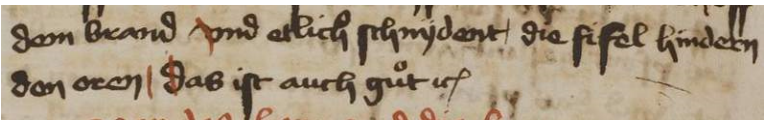 dem brand vnd etlich schnident die fifel hindern
den oren | das ist auch gůt ꝛc